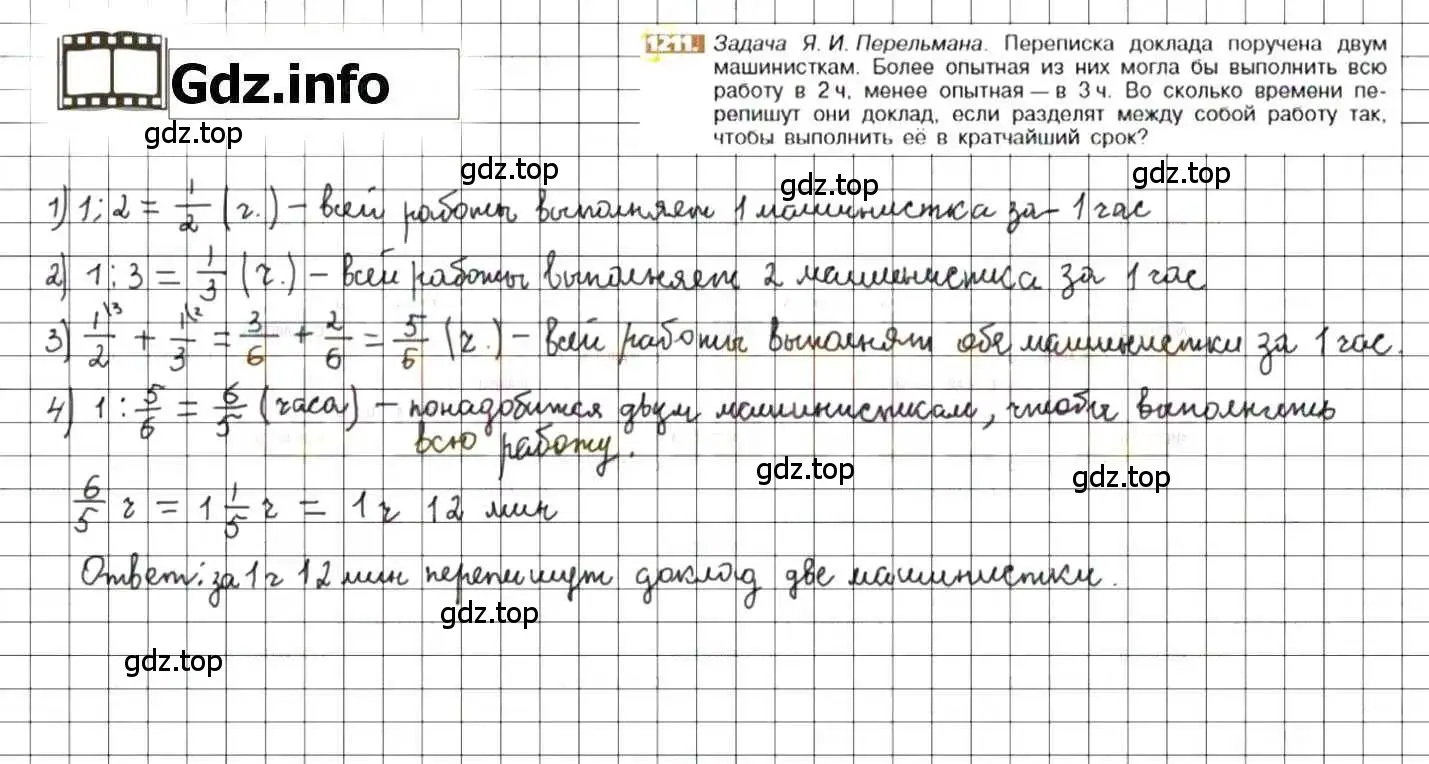 Gdz.info
gdz.top
1211. Задача Я. И. Перельмана. Переписка доклада поручена двум
машинисткам. Более опытная из них могла бы выполнить всю
работу в 2 ч, менее опытная — в 3 ч. Во сколько времени пе-
репишут они доклад, если разделят между собой работу так,
чтобы выполнить её в кратчайший срок?
gdz.top
gdz.top
gdz.top
gdz.top
1) 1:2 = 1/2 (ч.) – всей работы выполняет 1 машинистка за 1 час
2) 1:3 = 1/3 (ч.) – всей работы выполняет 2 машинистка за 1 час
3) 1\3/2 + 1\2/3 = 3/6 + 2/6 = 5/6 (ч.) – всей работы выполнят обе машинистки за 1 час.
4) 1 : 5/6 = 6/5 (часа) – понадобится двум машинисткам, чтобы выполнить
всю работу.
gdz.top
gdz.top
gdz.top
6/5 ч = 1 1/5 ч = 1 ч 12 мин
Ответ: за 1 ч 12 мин перепишут доклад две машинистки.
gdz.top
gdz.top